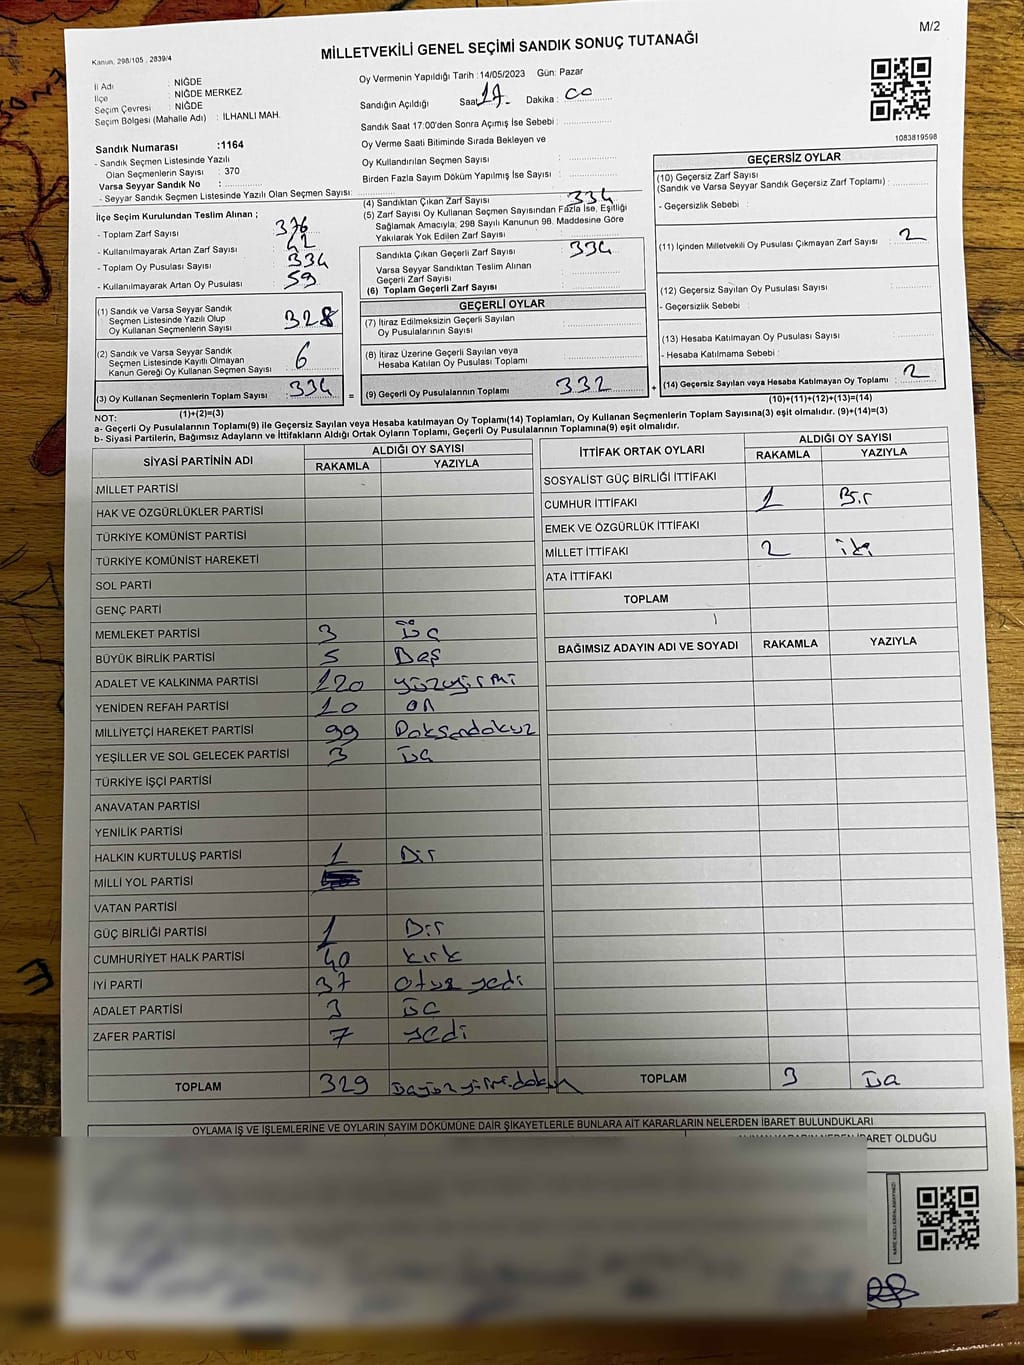 M/2
MİLLETVEKİLİ GENEL SEÇİMİ SANDIK SONUÇ TUTANAĞI
Kanun, 298/105 , 2839/4
İl Adı : NİĞDE
İlçe : NİĞDE MERKEZ
Seçim Çevresi : NİĞDE
Seçim Bölgesi (Mahalle Adı) : İLHANLI MAH.
Oy Vermenin Yapıldığı Tarih :14/05/2023 Gün: Pazar
Sandığın Açıldığı Saat 17 Dakika : 00
Sandık Saat 17:00'den Sonra Açımış İse Sebebi :
Oy Verme Saati Bitiminde Sırada Bekleyen ve
Oy Kullandırılan Seçmen Sayısı :
Birden Fazla Sayım Döküm Yapılmış İse Sayısı :
1083819598
Sandık Numarası :1164
- Sandık Seçmen Listesinde Yazılı
Olan Seçmenlerin Sayısı : 370
Varsa Seyyar Sandık No :
- Seyyar Sandık Seçmen Listesinde Yazılı Olan Seçmen Sayısı:
İlçe Seçim Kurulundan Teslim Alınan ;
- Toplam Zarf Sayısı : 376
- Kullanılmayarak Artan Zarf Sayısı : 42
- Toplam Oy Pusulası Sayısı : 334
- Kullanılmayarak Artan Oy Pusulası : 59
(1) Sandık ve Varsa Seyyar Sandık
Seçmen Listesinde Yazılı Olup
Oy Kullanan Seçmenlerin Sayısı : 328
(2) Sandık ve Varsa Seyyar Sandık
Seçmen Listesinde Kayıtlı Olmayan
Kanun Gereği Oy Kullanan Seçmen Sayısı : 6
(3) Oy Kullanan Seçmenlerin Toplam Sayısı : 334
(1)+(2)=(3)
(4) Sandıktan Çıkan Zarf Sayısı : 334
(5) Zarf Sayısı Oy Kullanan Seçmen Sayısından Fazla İse, Eşitliği
Sağlamak Amacıyla; 298 Sayılı Kanunun 98. Maddesine Göre
Yakılarak Yok Edilen Zarf Sayısı :
Sandıkta Çıkan Geçerli Zarf Sayısı : 334
Varsa Seyyar Sandıktan Teslim Alınan
Geçerli Zarf Sayısı :
(6) Toplam Geçerli Zarf Sayısı :
GEÇERLİ OYLAR
(7) İtiraz Edilmeksizin Geçerli Sayılan
Oy Pusulalarının Sayısı :
(8) İtiraz Üzerine Geçerli Sayılan veya
Hesaba Katılan Oy Pusulası Toplamı :
= (9) Geçerli Oy Pusulalarının Toplamı : 332 +
GEÇERSİZ OYLAR
(10) Geçersiz Zarf Sayısı
(Sandık ve Varsa Seyyar Sandık Geçersiz Zarf Toplamı) :
- Geçersizlik Sebebi :
(11) İçinden Milletvekili Oy Pusulası Çıkmayan Zarf Sayısı : 2
(12) Geçersiz Sayılan Oy Pusulası Sayısı :
- Geçersizlik Sebebi :
(13) Hesaba Katılmayan Oy Pusulası Sayısı :
- Hesaba Katılmama Sebebi :
(14) Geçersiz Sayılan veya Hesaba Katılmayan Oy Toplamı : 2
(10)+(11)+(12)+(13)=(14)
NOT:
a- Geçerli Oy Pusulalarının Toplamı(9) ile Geçersiz Sayılan veya Hesaba katılmayan Oy Toplamı(14) Toplamları, Oy Kullanan Seçmenlerin Toplam Sayısına(3) eşit olmalıdır. (9)+(14)=(3)
b- Siyasi Partilerin, Bağımsız Adayların ve İttifakların Aldığı Ortak Oyların Toplamı, Geçerli Oy Pusulalarının Toplamına(9) eşit olmalıdır.
SİYASİ PARTİNİN ADI ALDIĞI OY SAYISI
RAKAMLA YAZIYLA
MİLLET PARTİSİ
HAK VE ÖZGÜRLÜKLER PARTİSİ
TÜRKİYE KOMÜNİST PARTİSİ
TÜRKİYE KOMÜNİST HAREKETİ
SOL PARTİ
GENÇ PARTİ
MEMLEKET PARTİSİ 3 Üç
BÜYÜK BİRLİK PARTİSİ 5 Beş
ADALET VE KALKINMA PARTİSİ 120 yüzyirmi
YENİDEN REFAH PARTİSİ 10 on
MİLLİYETÇİ HAREKET PARTİSİ 99 Doksandokuz
YEŞİLLER VE SOL GELECEK PARTİSİ 3 Üç
TÜRKİYE İŞÇİ PARTİSİ
ANAVATAN PARTİSİ
YENİLİK PARTİSİ
HALKIN KURTULUŞ PARTİSİ 1 Bir
MİLLİ YOL PARTİSİ
VATAN PARTİSİ
GÜÇ BİRLİĞİ PARTİSİ 1 Bir
CUMHURİYET HALK PARTİSİ 40 kırk
İYİ PARTİ 37 otuz yedi
ADALET PARTİSİ 3 Üç
ZAFER PARTİSİ 7 yedi
TOPLAM 329 üçyüzyirmidokuz
İTTİFAK ORTAK OYLARI ALDIĞI OY SAYISI
RAKAMLA YAZIYLA
SOSYALİST GÜÇ BİRLİĞİ İTTİFAKI
CUMHUR İTTİFAKI 1 Bir
EMEK VE ÖZGÜRLÜK İTTİFAKI
MİLLET İTTİFAKI 2 iki
ATA İTTİFAKI
TOPLAM
BAĞIMSIZ ADAYIN ADI VE SOYADI RAKAMLA YAZIYLA
TOPLAM 3 Üç
OYLAMA İŞ VE İŞLEMLERİNE VE OYLARIN SAYIM DÖKÜMÜNE DAİR ŞİKAYETLERLE BUNLARA AİT KARARLARIN NELERDEN İBARET BULUNDUKLARI
İBARET OLDUĞU